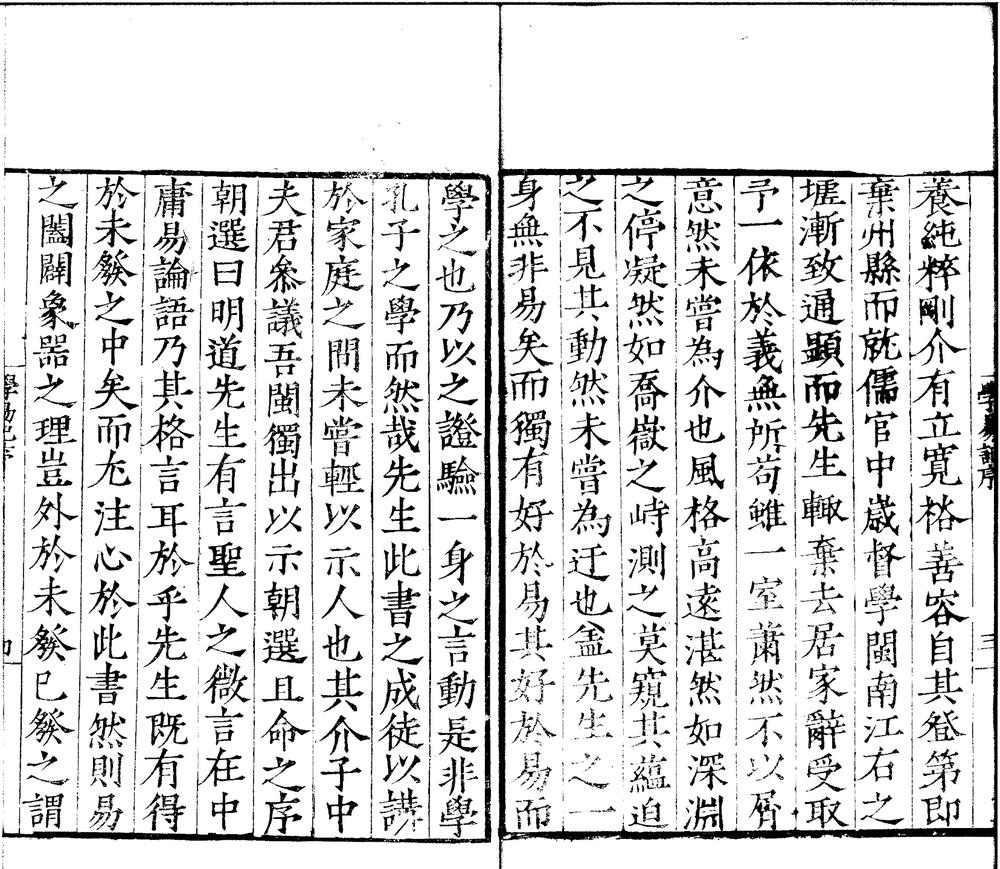 養純粹剛介有立寬格善容自其登第即
棄州縣而就儒官中歲督學閩南江右之
墟漸致通顯而先生輙棄去居家辭受取
予一依於義無所苟雖一室蕭然不以屑
意然未嘗為介也風格高遠湛然如深淵
之停凝然如喬嶽之峙測之莫窺其蘊迫
之不見其動然未嘗為迂也盖先生之一
身無非易矣而獨有好於易其好於易而
學之也乃以之證驗一身之言動是非學
孔子之學而然哉先生此書之成徒以講
於家庭之間未嘗輕以示人也其介子中
夫君叅議吾閩獨出以示朝選且命之序
朝選曰明道先生有言聖人之微言在中
庸易論語乃其格言耳於乎先生既有得
於未發之中矣而尤注心於此書然則易
之闔闢象器之理豈外於未發已發之謂
學易記序
三